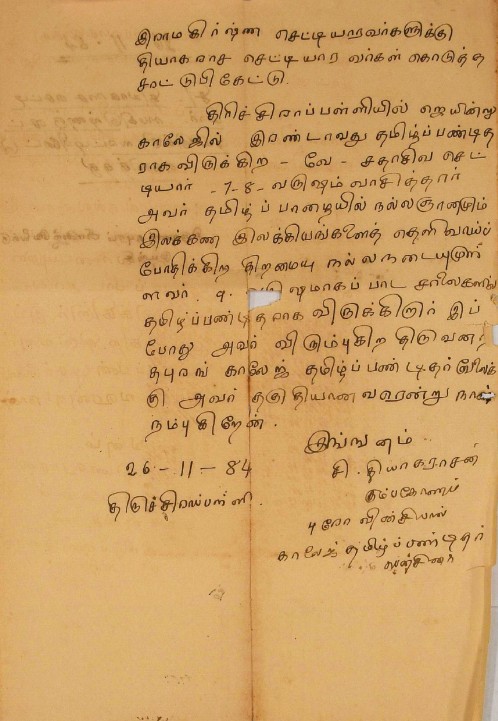 இராம கிர்ஷ்ண செட்டியாரவர்களுக்கு
தியாகராச செட்டியார வர்கள் கொடுத்த
சாட்டுபிகேட்டு.
திரிச்சிராப்பள்ளியில் ஜெயின்று
காலேஜில் இரண்டாவது தமிழ்ப்பண்டித
ராகவிருக்கிற - வே - சதாசிவ செட்
டியார் - 7-8- வருஷம் வாசித்தார்
அவர் தமிழ்ப் பாஷையில் நல்லஞானமும்
இலக்கண இலக்கியங்களைத் தெளிவாய்ப்
போதிக்கிற திறமையு நல்லநடையுமுள்
ளவர். 9. வருஷமாகப் பாட சாலைகளில்
தமிழ்ப்பண்டிதராக விருக்கிறார் இப்
போது அவர் விரும்புகிற திருவனந்
தபுரங் காலேஜ் தமிழ்ப்பண்டிதர் வேலைக்
கு அவர் தகுதியானவரென்று நான்
நம்புகிறேன்.
இங்ஙனம்
26-11-84
சி. தியாகராசன்
திருச்சிராப்பள்ளி.
கும்பகோணம்
புரோவின்சியால்
காலேஜ் தமிழ்ப்பண்டிதர்